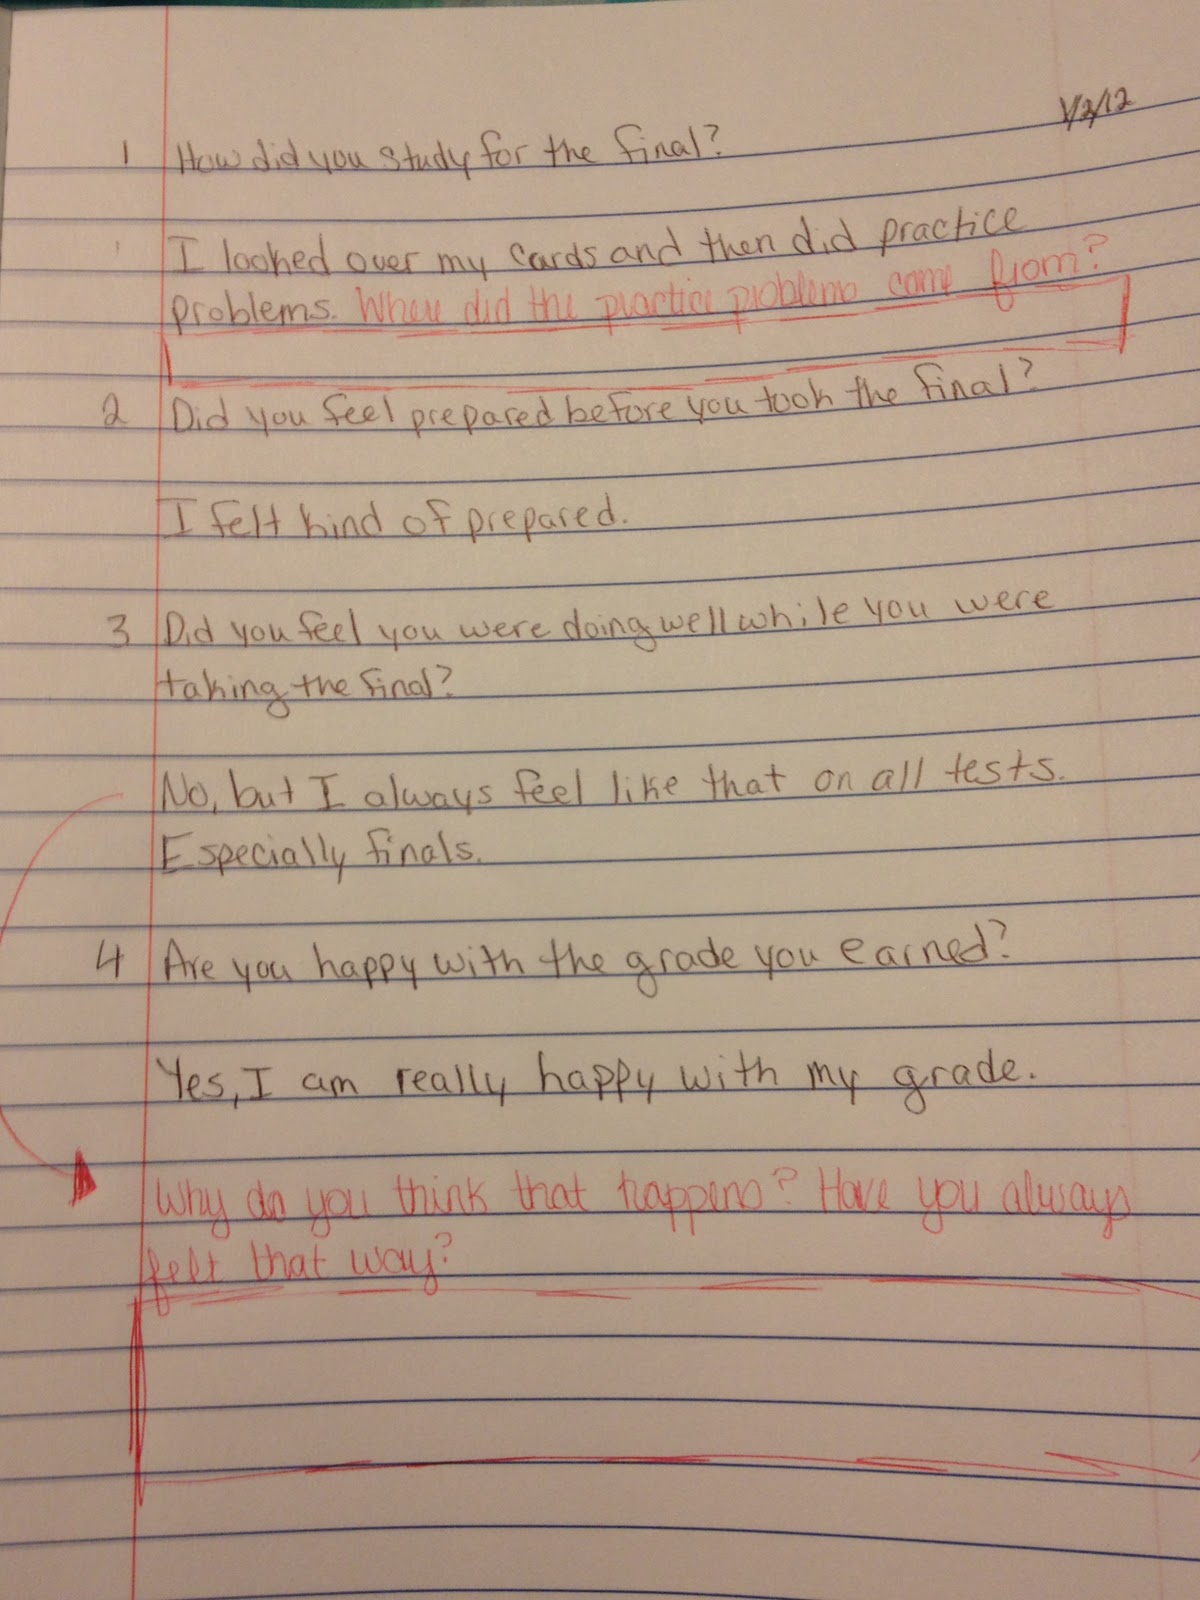 1/2/12
1 How did you study for the final?
I looked over my cards and then did practice
problems. Where did the practice problems come from?
2 Did you feel prepared before you took the final?
I felt kind of prepared.
3 Did you feel you were doing well while you were
taking the final?
No, but I always feel like that on all tests.
Especially finals.
4 Are you happy with the grade you earned?
Yes, I am really happy with my grade.
Why do you think that happens? Have you always
felt that way?